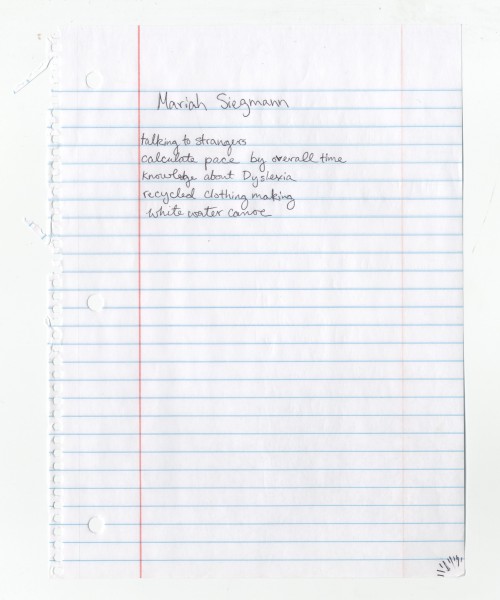 Mariah Siegmann
talking to strangers
calculate pace by overall time
knowledge about Dyslexia
recycled clothing making
white water canoe